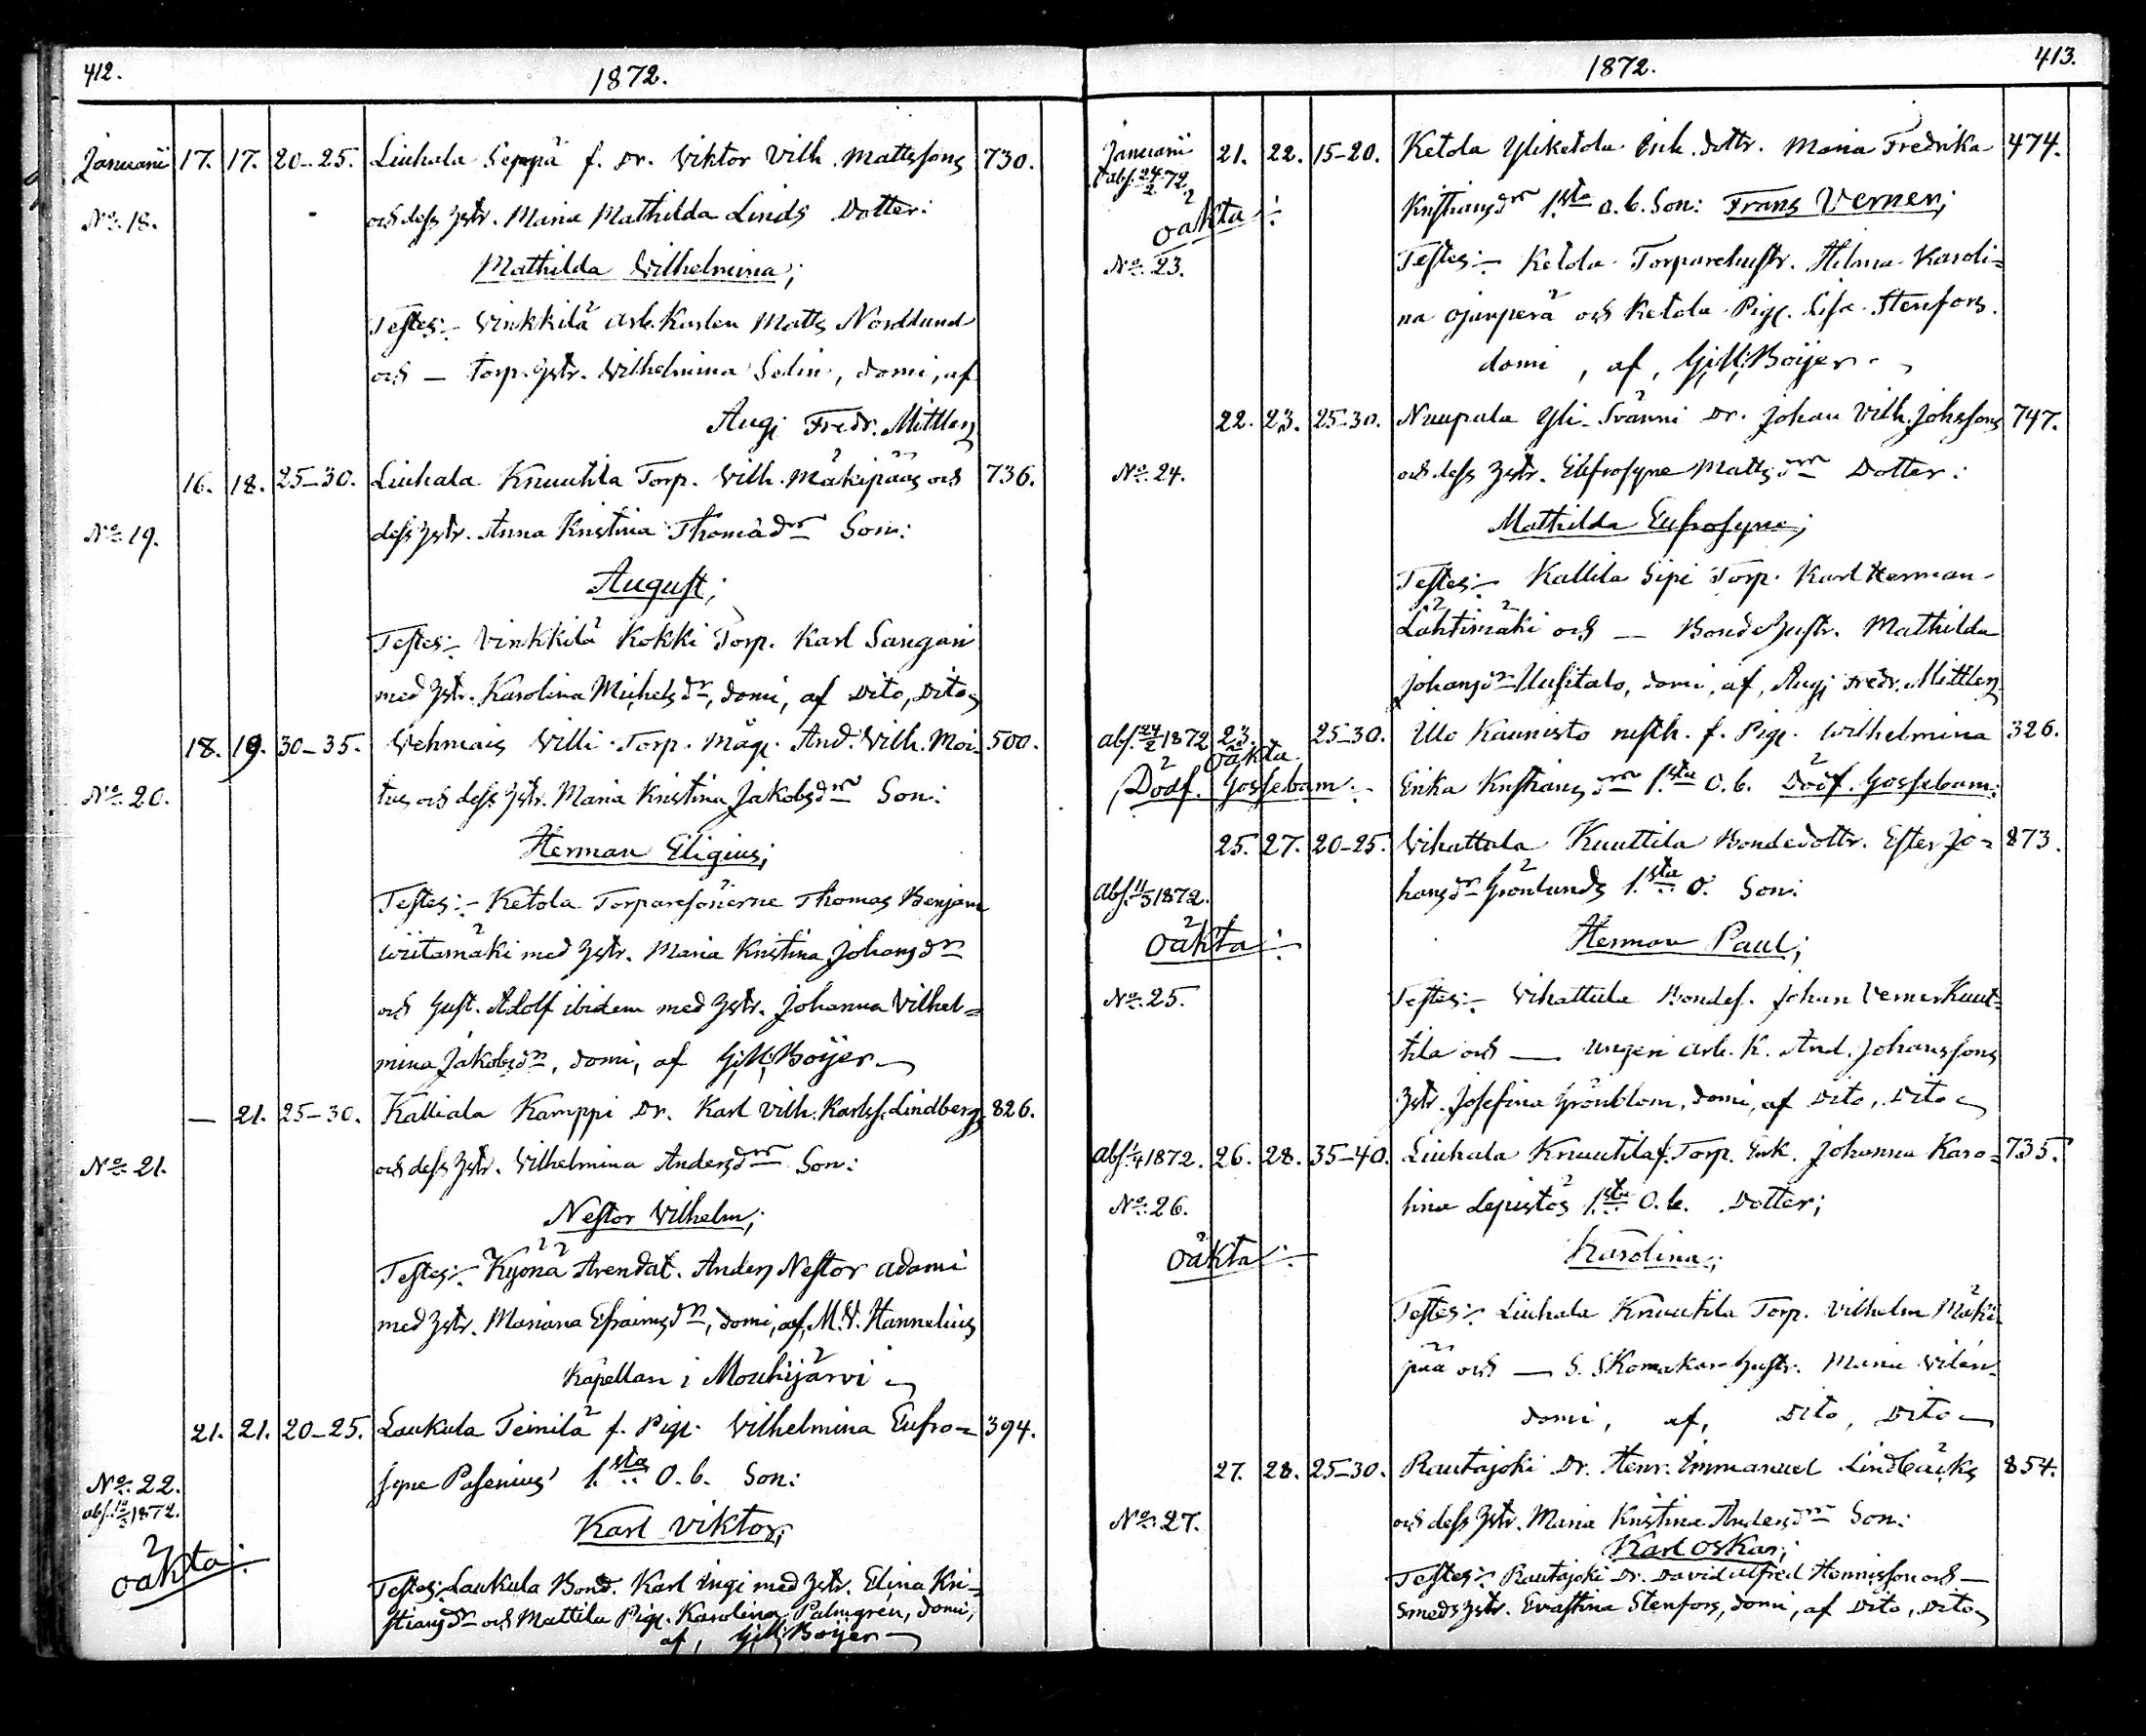 412.
1872.
Januarii 17. 17. 20-25. Liuhala Seppä f. Dr. Viktor Vilh. Mattssons 730.
No. 18. och dess hstr. Maria Mathilda Linds Dotter:
Mathilda Wilhelmina;
Testes:- Vinkkilä Arb. Karlen Matts Nordlund
och — torp. hstr. Wilhelmina Selin, domi, af
Aug; Fredr. Mittler
16. 18. 25-30. Liuhala Knuutila Torp. Vilh. Mäkipääs och 736.
No. 19. dess hstr. Anna Kristina Thomædr Son:
August;
Testes:- Vinkkilä Kokki Torp. Karl Sangari
med hstr. Karolina Michelsdr, domi, af Dito, Dito
18. 19. 30-35. Vehmais Villi Torp. Måg. And. Vilh. Moi- 500.
No. 20. tus och dess hstr. Maria Kristina Jakobsdr Son:
Herman Eligius;
Testes:- Ketola Torparesönerne Thomas Benjam
Wiitamäki med hstr. Maria Kristina Johansdr
och Gust. Adolf ibidem med hstr. Johanna Vilhel=
mina Jakobsdr, domi, af G; M; Boijer
— 21. 25-30. Kalliala Kamppi Dr. Karl Vilh. Karlss. Lindbergs 826.
No. 21. och dess hstr. Vilhelmina Andersdr Son:
Nestor Vilhelm;
Testes:- Kyönä Arendat. Anders Nestor Adami
med hstr. Mariana Efraimsdr, domi, af, M. V. Hannelius
Kapellan i Mouhijärvi
21. 21. 20-25. Laukula Teinilä f. Pig. Vilhelmina Eufro= 394.
No. 22. syne Pasenius' 1.sta O. b. Son:
abs. 10/3 1872. Karl Viktor;
oäkta:
Testes:- Laukula Bond. Karl Ingi med hstr. Elina Kri-
stiansdr och Mattila Pig. Karolina Palmgrén, domi,
af, G; M; Boijer
1872.
413.
Januarii 21. 22. 15-20. Ketola Yliketola Enk. dottr. Maria Fredrika 474.
abs. 24/2 72 Kristiansdr 1.sta o. b. Son: Frans Verner;
oäkta:
No. 23. Testes:- Ketola Torparehustr. Hilma Karoli=
na Ojanperä och Ketola Pig. Lisa Stenfors.
domi, af, G; M; Boijer
22. 23. 25-30. Nuupala Yli-Svänni Dr. Johan Vilh. Johssons 747.
No. 24. och dess hstr. Eufrosyne Mattsdr Dotter:
Mathilda Eufrosyne;
Testes:- Kallila Sipi Torp. Karl Herman
Lähtimäki och — Bondehustr. Mathilda
Johansdr Uusitalo, domi, af, Aug; Fredr. Mittler
abs. 24/2 1872 23. 25-30. Ullo Kaunisto f. Pig. Wilhelmina 326.
oäkta.
Dödf. Gossebarn:- Erika Kristiansdr 1.sta O. b. Dödf. Gossebarn:
25. 27. 20-25. Vihattula Kuuttila Bondedottr. Ester Jo= 873.
abs. 11/3 1872. hansdr Grönlunds 1.sta O. Son:
oäkta:
Herman Paul;
No. 25. Testes:- Vihattula Bondes. Johan Verner Kuut=
tila och — Ungeri Arb. K. And. Johanssons
hstr. Josefina Grönblom, domi, af Dito, Dito
abs. 1/4 1872. 26. 28. 35-40. Liuhala Knuutila f. Torp. Enk. Johanna Karo= 735.
No. 26. lina Lepistös 1.sta O. b. Dotter;
oäkta:
Karolina;
Testes:- Liuhala Knuutila Torp. Vilhelm Mäki
pää och — S. Skomakar hustr. Maria Vilén
domi, af, Dito, Dito
27. 28. 25-30. Rautajoki Dr. Henr. Immanuel Lindbäcks 854.
No. 27. och dess hstr. Maria Kristina Andersdr Son:
Karl Oskar;
Testes:- Rautajoki Dr. David Alfred Hennisson och —
Smeds hstr. Evastina Stenfors, domi, af Dito, Dito